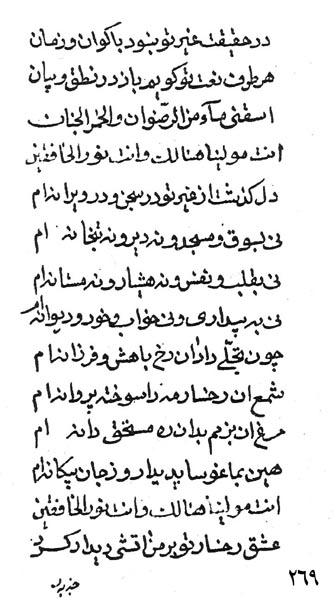 در حقیقت غیر تو نبود باکوان و زمان
هر طرف نعت تو کویم باز در نطق و بیان
اسقنی ماء من الرضوان والخمر الجنان
انت مولینا هنالک وانت نور الخافقین
دل کذشت از غیر تو در سجن و در ویرانه ام
نی بسوق و مسجد و نه دیر و نه بتخانه ام
نی بقلب و نفس و نه هشیار و نه مستانه ام
نی به بیداری و نی خواب و خور و دیوانه ام
چون تجلّی دادان رخ باهش و فرزانه ام
شمع ان رخسار مه را سوخته پروانه ام
مرغ ان بزمم بدان ده مستحق دانه ام
هین بماغو سا بدیدار و ز جان بیکانه ام
انت مولینا هنالک وانت نور الخافقین
عشق رخسار تو بر من اتشی دیدار کرد
۲۶۹